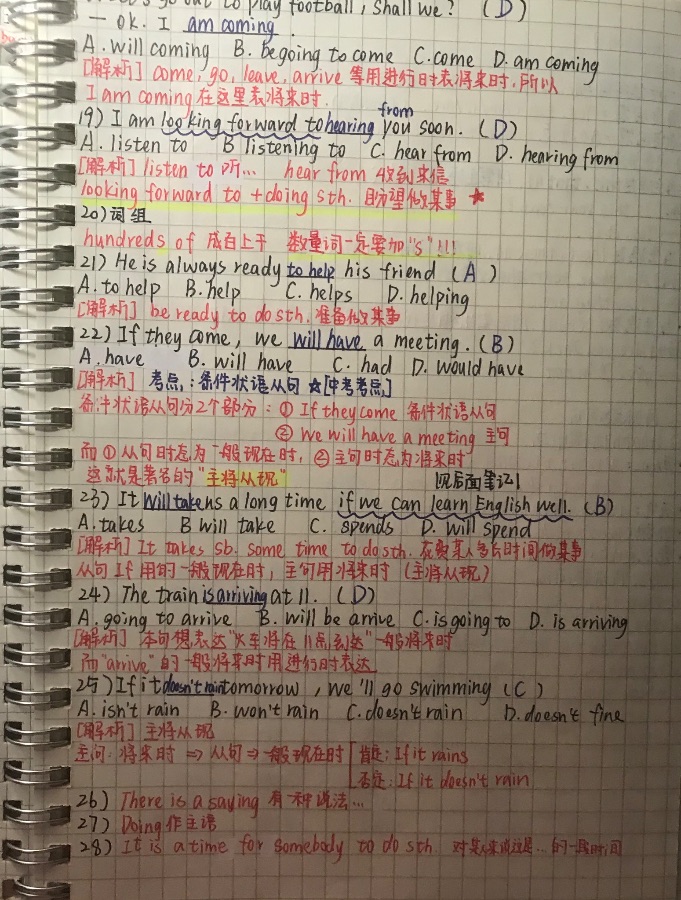 go out to play football, shall we? (D)
— OK. I am coming.
A. will coming B. be going to come C. come D. am coming
[解析] come, go, leave, arrive 等用进行时表将来时, 所以
I am coming 在这里表将来时.
19) I am looking forward to hearing from you soon. (D)
A. listen to B listening to C. hear from D. hearing from
[解析] listen to 听... hear from 收到来信
looking forward to + doing sth. 盼望做某事 ★
20) 词组
hundreds of 成百上千 数量词一定要加"s"!!!
21) He is always ready to help his friend (A)
A. to help B. help C. helps D. helping
[解析] be ready to do sth. 准备做某事
22) If they come, we will have a meeting. (B)
A. have B. will have C. had D. would have
[解析] 考点: 条件状语从句 ★[中考考点]
条件状语从句分2个部分: ① If they come 条件状语从句
② we will have a meeting 主句
而 ① 从句时态为一般现在时, ② 主句时态为将来时
这就是著名的"主将从现"
见后面笔记1
23) It will takens a long time if we can learn English well. (B)
A. takes B will take C. spends D. will spend
[解析] It takes sb. some time to do sth. 花费某人多长时间做某事
从句 If 用的一般现在时, 主句用将来时 (主将从现)
24) The train is arriving at 11. (D)
A. going to arrive B. will be arrive C. is going to D. is arriving
[解析] 本句想表达"火车将在11点到达"一般将来时
而"arrive"的一般将来时用进行时表达
25) If it doesn't rain tomorrow, we'll go swimming (C)
A. isn't rain B. won't rain C. doesn't rain D. doesn't fine
[解析] 主将从现
主句: 将来时 ⇒ 从句 ⇒ 一般现在时 肯定: If it rains
否定: If it doesn't rain
26) There is a saying 有一种说法...
27) Doing 作主语
28) It is a time for somebody to do sth 对某人来说这是...的一段时间